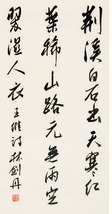 荆溪白石出天寒红
葉稀山路元無雨空
翠湿人衣 王維诗 林剑丹